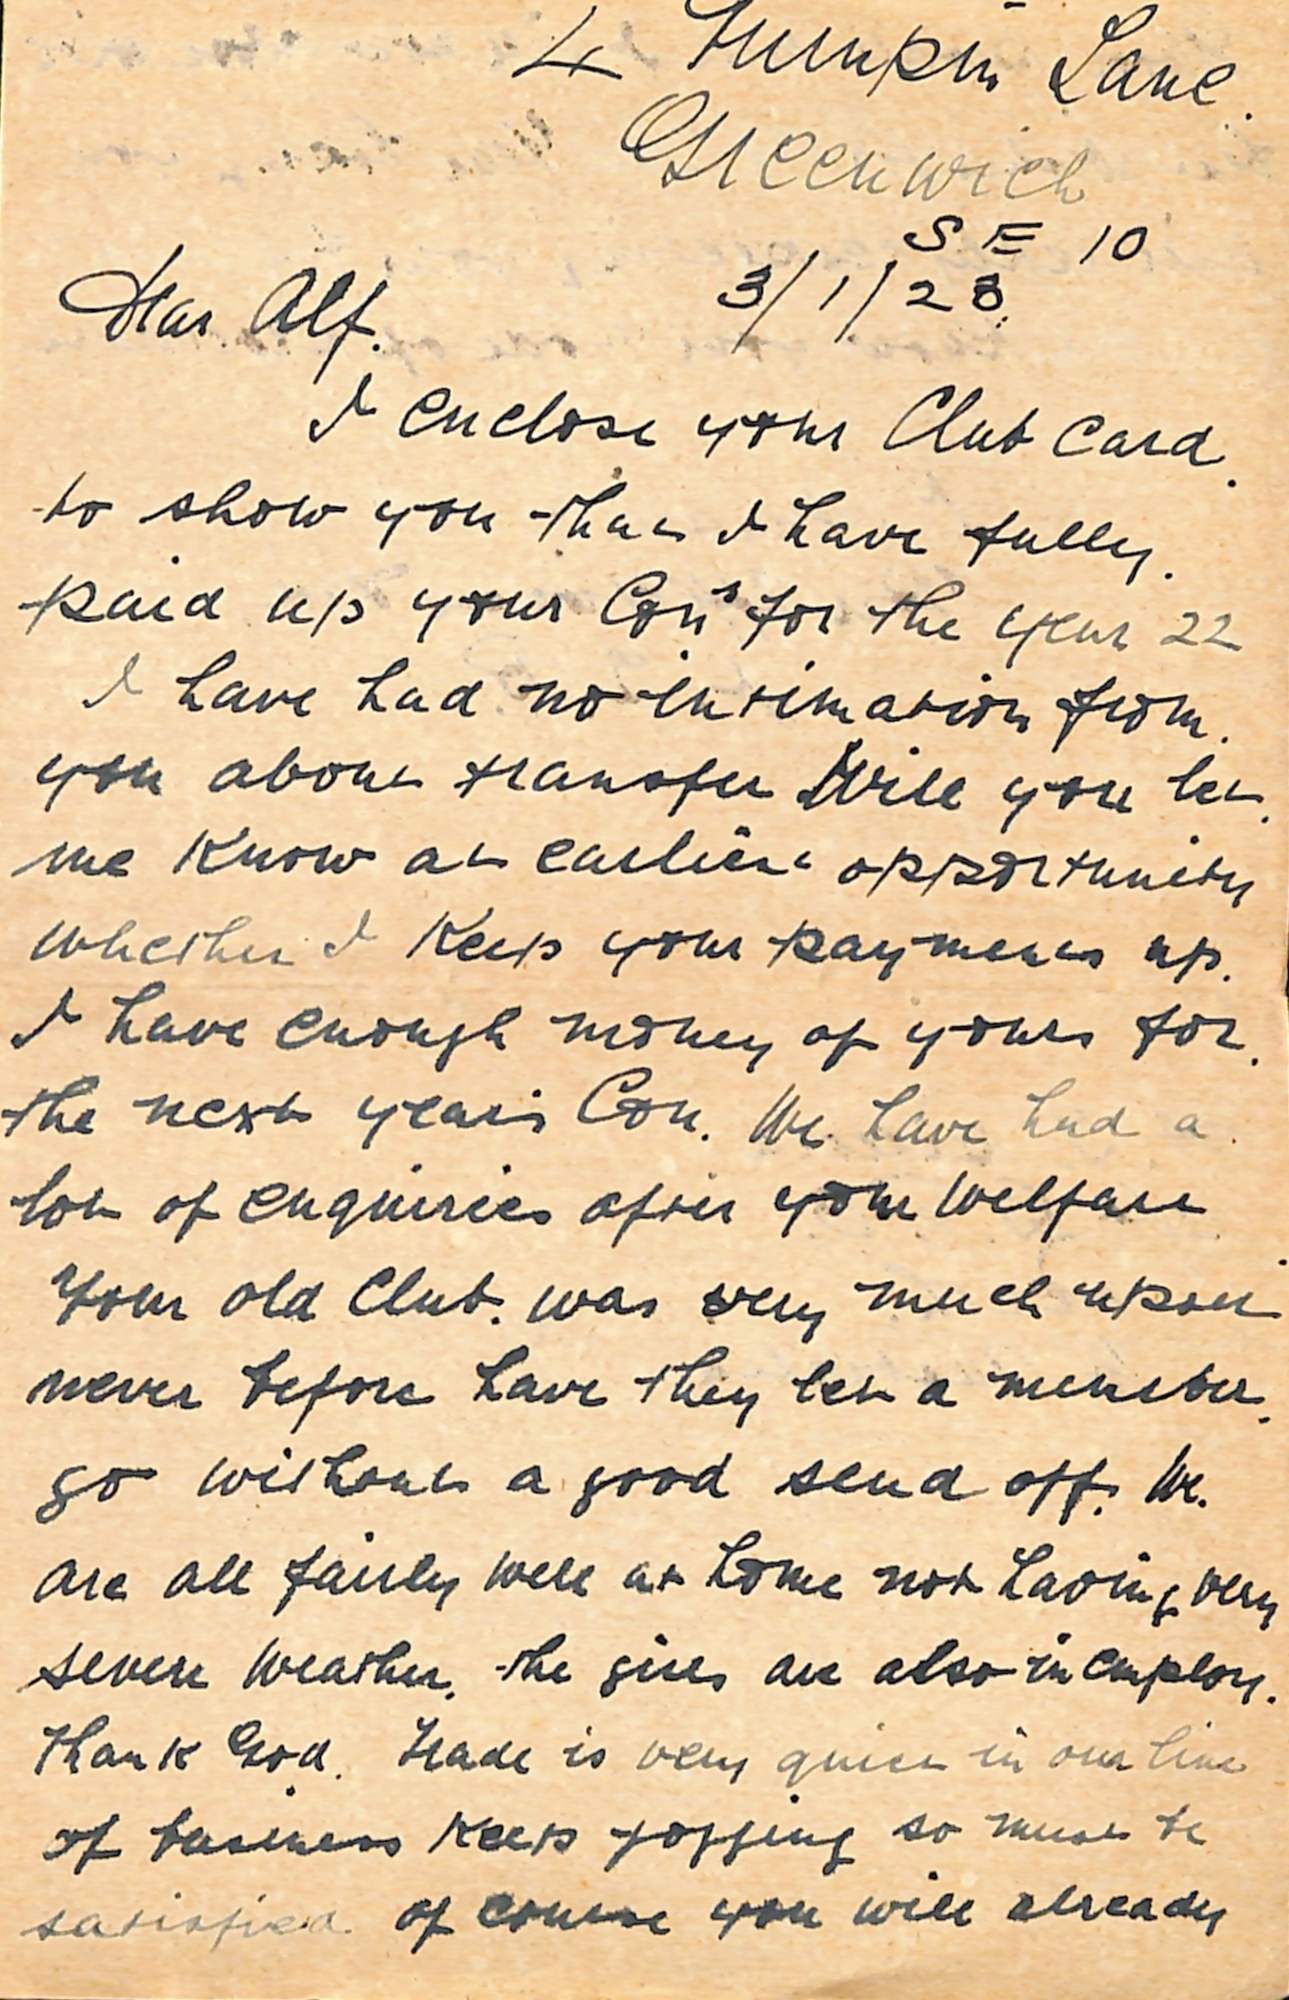 4 Tumpin Lane.
Greenwich
SE 10
3/1/23.
Dear Alf.
I enclose your Club Card.
to show you that I have fully.
paid up your Con's for the year 22
I have had no intimation from.
you about transfer Will you let.
me know at earliest opportunity
whether I keep your payments up.
I have enough money of yours for.
the next year's Con. We have had a.
lot of enquiries after your welfare
Your old Club. was very much upset
never before have they let a member.
go without a good send off. We.
are all fairly well at home not having very
severe weather. the girls are also in employ.
Thank God. Trade is very quiet in our line
of business keeps jogging so must be
satisfied. of course you will already